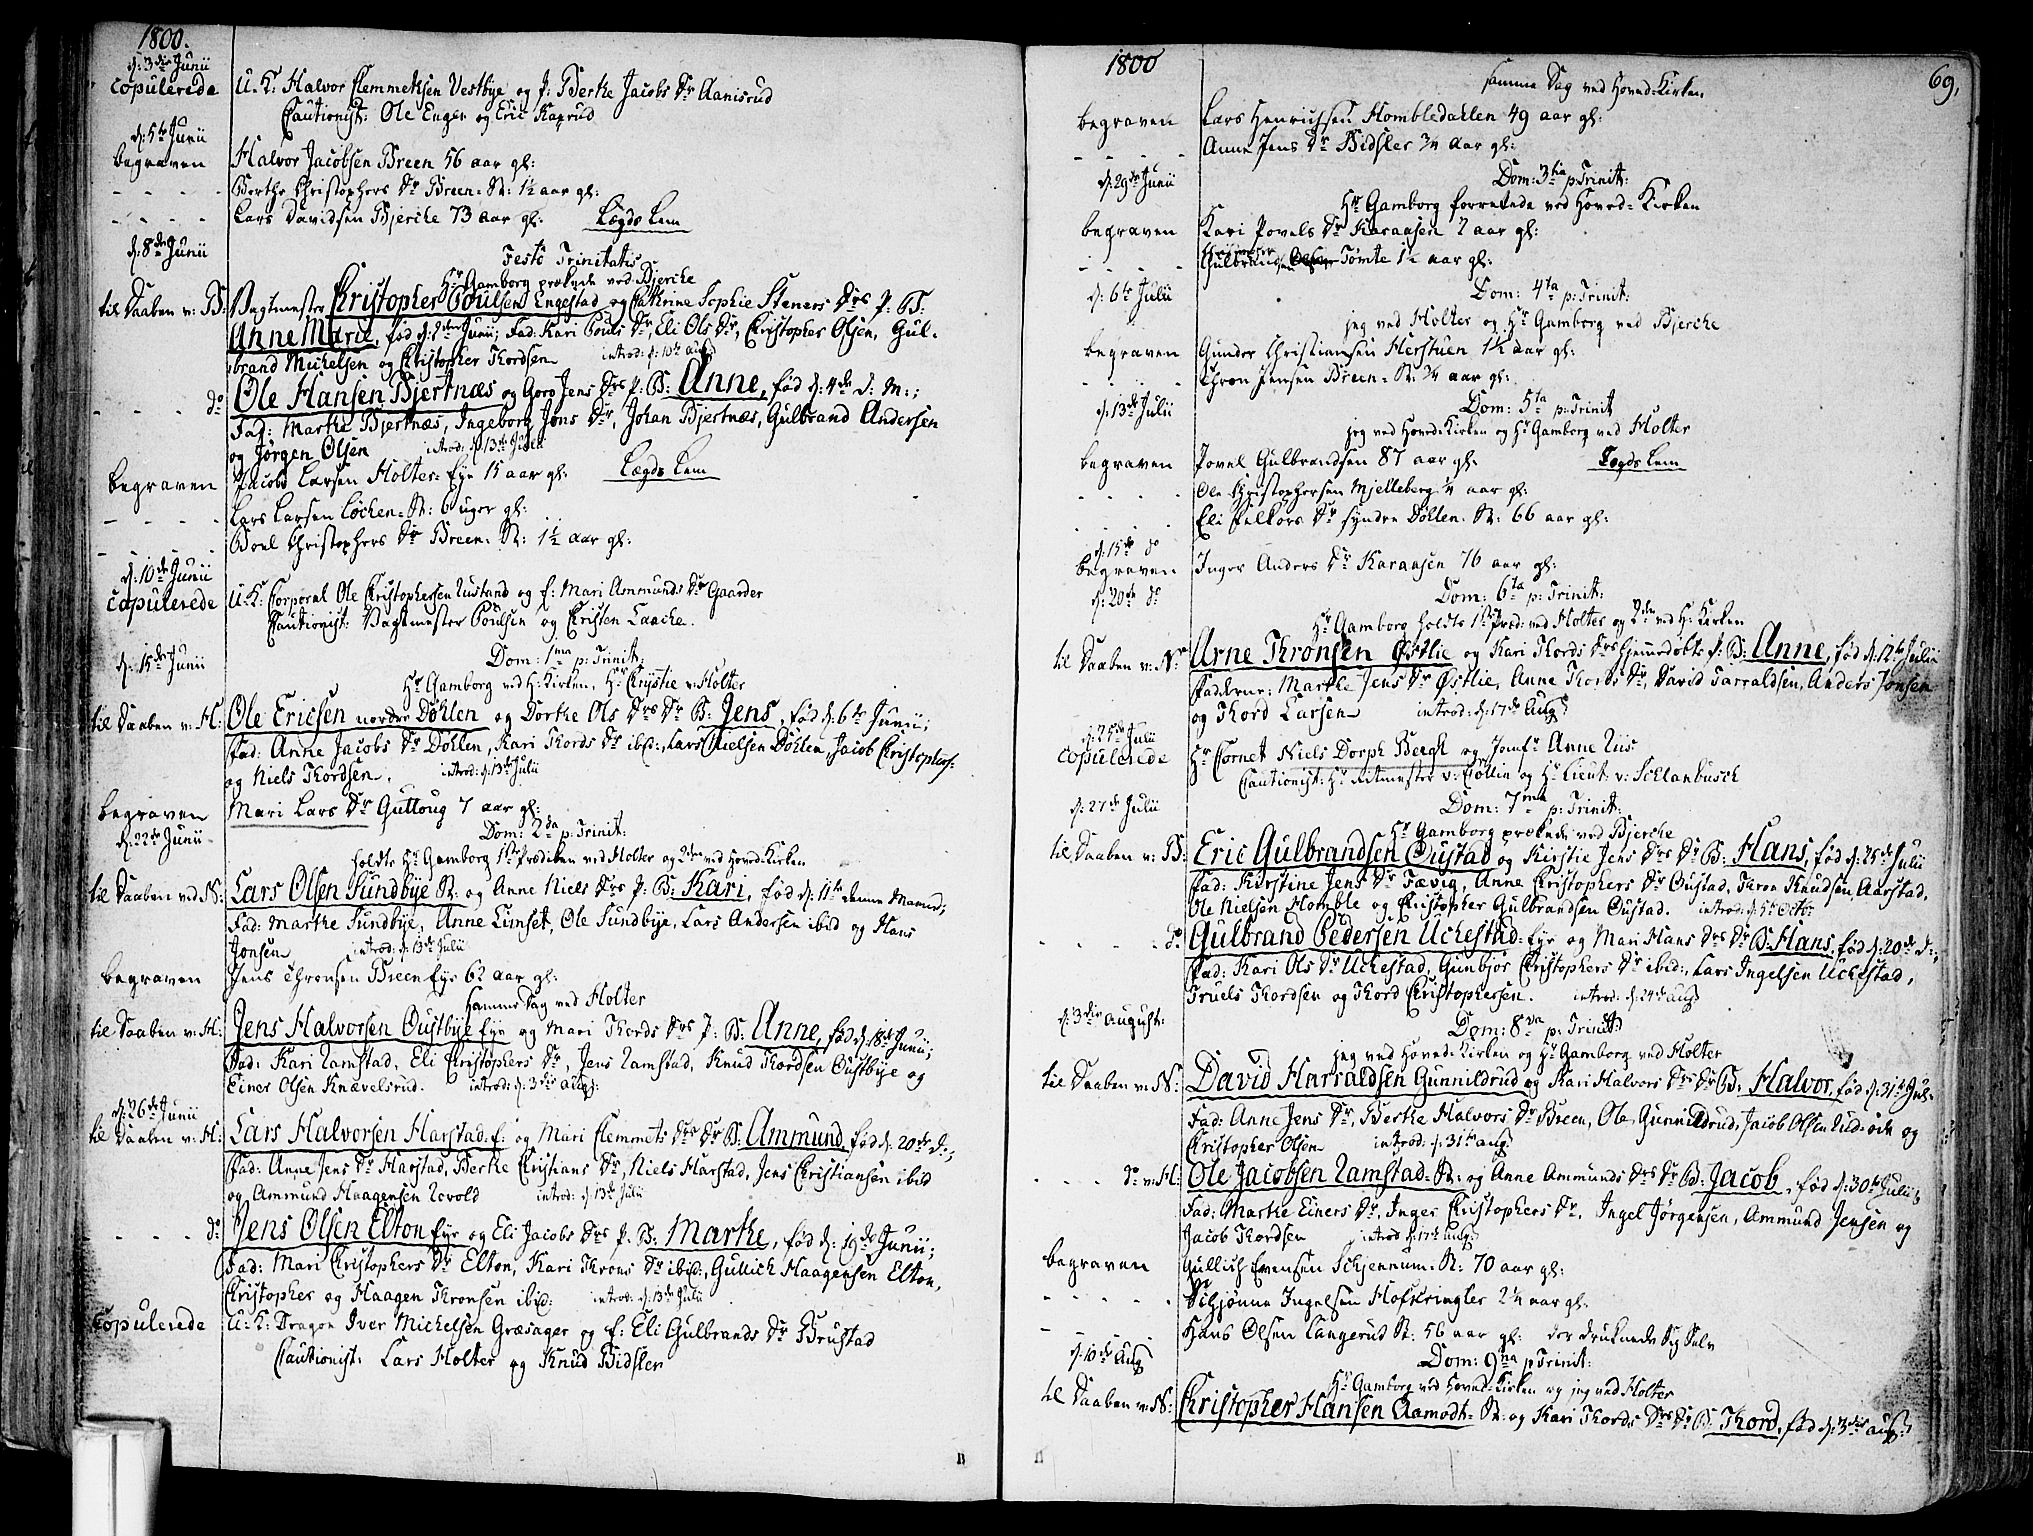 1800.
d: 3die Junii
copulerede U: K: Halvor Clemmetsen Vestbye og P: Berthe Jacobs Dr Aanisrud
Cautionist: Ole Enger og Eric Kaprud
d: 5te Junii
begraven Halvor Jacobsen Breen 56 aar gl:
- - - - Berthe Christophers Dr Breen-St: 1½ aar gl:
- - - - Lars Davidsen Bjerche 73 aar gl: Lægds Lem
d: 8de Junii Festo Trinitatis
Hr Gamborg prækede ved Bjerche
til Daaben v: B: Vagtmester Christopher Poulsen Engestad og Cathrine Sophie Steners Drs P: B:
Anne Marie, fød d: 2den Junii; Fad: Kari Pouls Dr, Eli Ols Dr, Christopher Olsen, Gul-
brand Michelsen og Christopher Thordsen introd: d: 10de aug:
- - - - do Ole Hansen Bjertnæs og Goro Jens Drs P: B: Anne, fød d: 4de d: M:;
Fad: Marthe Bjertnæs, Ingeborg Jens Dr, Johan Bjertnæs, Gulbrand Andersen
og Jørgen Olsen introd: d: 13de Julii
begraven Jacob Larsen Holter-Eye 15 aar gl: Lægds Lem
- - - - Lars Larsen Løchen-St: 6 uger gl:
- - - - Boel Christophers Dr Breen-St: 1½ aar gl:
d: 10de Junii
copulerede U: K: Corporal Ole Christophersen Rustand og f: Mari Ammunds Dr Gaarder
Cautionist: Vagtmester Poulsen og Christen Laache.
d: 15de Junii Dom: 1ma p: Trinit:
Hr Gamborg ved H: Kirken, Hr Chrystie v: Holter
til Daaben v: H: Ole Ericsen nordre Døhlen og Dorthe Ols Drs Dr B: Jens, fød d: 6te Junii;
Fad: Anne Jacobs Dr Døhlen, Kari Thords Dr ibid:, Lars Nielsen Døhlen, Jacob Christophers:
og Niels Thordsen. introd: d: 13de Julii
begraven Mari Lars Dr Guttoug 7 aar gl:
d: 22de Junii Dom: 2da p: Trinit:
holdte Hr Gamborg 1ste Prædiken ved Holter og 2den ved Hoved-Kirken
til Daaben ved N: Lars Olsen Sundbye St: og Anne Niels Drs P: B: Kari, fød d: 11te denne Maaned;
Fad: Marthe Sundbye, Anne Limset, Ole Sundbye, Lars Andersen ibid og Hans
Jonsen introd: d: 13de Julii
begraven Jens Thronsen Breen Eye 62 aar gl:
Samme Dag ved Holter
til Daaben v: H: Jens Halvorsen Oustbye Eye og Mari Thords Drs P: B: Anne, fød d: 18de Junii;
Fad: Kari Ramstad, Eli Christophers Dr, Jens Ramstad, Knud Thordsen Oustbye og
Einer Olsen Knævelsrud. introd: d: 3die aug:
d: 26de Junii
til Daaben v: H: Lars Halvorsen Harstad: E: og Mari Clemmets Drs Dr B: Ammund, fød d: 20de d:;
Fad: Anne Jens Dr Harstad, Berthe Christians Dr, Niels Harstad, Jens Christiansen ibid
og Ammund Haagensen Revold introd: d: 13de Julii
- - - - do Jens Olsen Elton Eye og Eli Jacobs Drs P: B: Marthe, fød d: 19de Junii;
Fad: Mari Christophers Dr Elton, Kari Throns Dr ibid:, Gullich Haagensen Elton,
Christopher og Haagen Thronsen ibid: introd: d: 13de Julii
copulerede U: K: Dragon Iver Michelsen Græsager og f: Eli Gulbrands Dr Brustad
Cautionist: Lars Holter og Knud Bidsler
B
1800 69,
samme Dag ved Hoved-Kirken
begraven Lars Henrichsen Hombledahlen 49 aar gl:
- - - - Anne Jens Dr Bidsler ¾ aar gl:
d: 29de Junii Dom: 3tia p: Trinit:
Hr Gamborg forrettede ved Hoved-Kirken
begraven Kari Povels Dr Karaasen 2 aar gl:
- - - - Gulbrand Tømte 1½ aar gl:
d: 6te Julii Dom: 4ta p: Trinit:
jeg ved Holter og Hr Gamborg ved Bjerche
begraven Gunder Christiansen Herstuen 1½ aar gl:
- - - - Thron Jensen Breen-St: ¾ aar gl:
d: 13de Julii Dom: 5ta p: Trinit
jeg ved Hoved-Kirken og Hr Gamborg ved Holter
begraven Povel Gulbrandsen 87 aar gl: Lægds Lem
- - - - Ole Christophersen Mjelleberg ¼ aar gl:
- - - - Eli Pelkors Dr syndre Døhlen-St: 66 aar gl:
d: 15de do
begraven Inger Anders Dr Karaasen 76 aar gl:
d: 20de do Dom: 6ta p: Trinit:
Hr Gamborg holdte 1ste Præd: ved Holter og 2den ved H: Kirken
til Daaben v: N: Arne Thronsen Østlie og Kari Thords Drs hjemmedøbte P: B: Anne, fød d: 12te Julii
Fadderne: Marthe Jens Dr Østlie, Anne Thords Dr, David Harraldsen, Anders Jonsen
og Thord Larsen introd: d: 17de Aug:
d: 25de Julii
copulerede Hr Cornet Niels Dorph Bergh og Jomfr Anne Riis
Cautionist: Hr Ritmester v: Collin og Hr Lieut: v: Schlanbusch
d: 27de Julii Dom: 7ma p: Trinit:
Hr Gamborg prækede ved Bjerche
til Daaben v: B: Eric Gulbrandsen Oustad og Kirstie Jens Drs Dr B: Hans, fød d: 25de Julii
Fad: Kirstine Jens Dr Tævig, Anne Christophers Dr Oustad, Thron Knudsen Aarstad,
Ole Nielsen Homble og Christopher Gulbrandsen Oustad. introd: d: 5te Octo:
- - - - do Gulbrand Pedersen Uckestad-Eye og Mari Hans Drs Dr B: Hans, fød d: 20de d:;
Fad: Kari Ols Dr Uckestad, Gunbjør Christophers Dr ibid:, Lars Ingelsen Uckestad,
Truels Thordsen og Thord Christophersen. introd: d: 24de aug:
d: 3die August: Dom: 8va p: Trinit:
jeg ved Hoved-Kirken og Hr Gamborg ved Holter
til Daaben v: N: David Harraldsen Gunnildrud og Kari Halvors Drs Dr B: Halvor, fød d: 31te Jul:
Fad: Anne Jens Dr, Berthe Halvors Dr Breen, Ole Gunnildrud, Jacob Olsen Rud-øde og
Christopher Olsen introd: d: 31te aug:
- - - do v: H: Ole Jacobsen Ramstad-St: og Anne Ammunds Drs Dr B: Jacob, fød d: 30te Julii;
Fad: Marthe Einers Dr, Inger Christophers Dr, Ingel Jørgensen, Ammund Jensen og
Jacob Thordsen introd d: 17de aug:
begraven Gullich Evensen Schjennum-St: 70 aar gl:
- - - - Schjønne Ingelsen Hofsringler 2¼ aar gl:
- - - - Hans Olsen Langerud St: 56 aar gl: der druknede sig Selv
d: 10de Aug: Dom: 9na p Trinit:
Hr Gamborg ved Hoved-Kirken og jeg ved Holter
til Daaben v: N: Christopher Hansen Aamodt-St: og Kari Thords Drs Dr B: Thord, fød d: 3die aug: